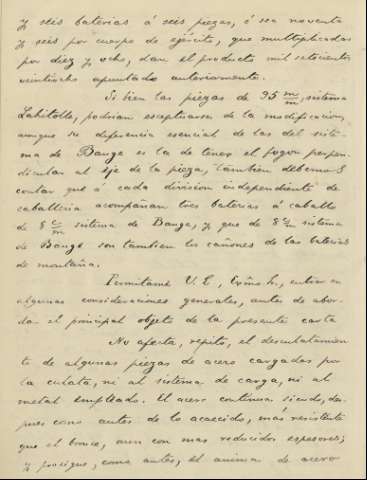 y seis baterias á seis piezas, ó sea noventa
y seis por cuerpo de ejército, que multiplicadas
por diez y ocho, dan el producto mil setecientos
veintiocho apuntado anteriormente.
Si bien las piezas de 95 m/m, sistema
Lahitolle, podrian esceptuarse de la modificacion,
aunque su diferencia esencial de las del siste-
ma de Bange es la de tener el fogon perpen-
dicular al eje de la pieza, tambien debemos
contar que á cada division independiente de
caballeria acompañan tres baterias á caballo
de 8 c/m sistema de Bange, y que de 8 c/m sistema
de Bange son tambien los cañones de las baterias
de montaña.
Permitame V. E., Exmo Sr., entrar en
algunas consideraciones generales, antes de abor-
dar el principal objeto de la presente carta
No afecta, repito, el desculatamien-
to de algunas piezas de acero cargadas por
la culata, ni al sistema de carga, ni al
metal empleado. El acero continua siendo, des-
pues como antes de lo acaecido, más resistente
que el bronce, aun con mas reducidos espesores;
y prosigue, como antes, el anima de acero